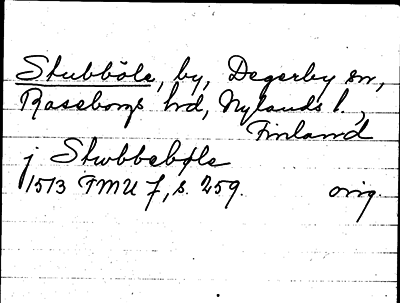 Stubböle, by, Degerby sn,
Raseborgs hd, Nylands l.,
Finland
j Stwbbebøle
1513 FMU 7, s. 259. orig.